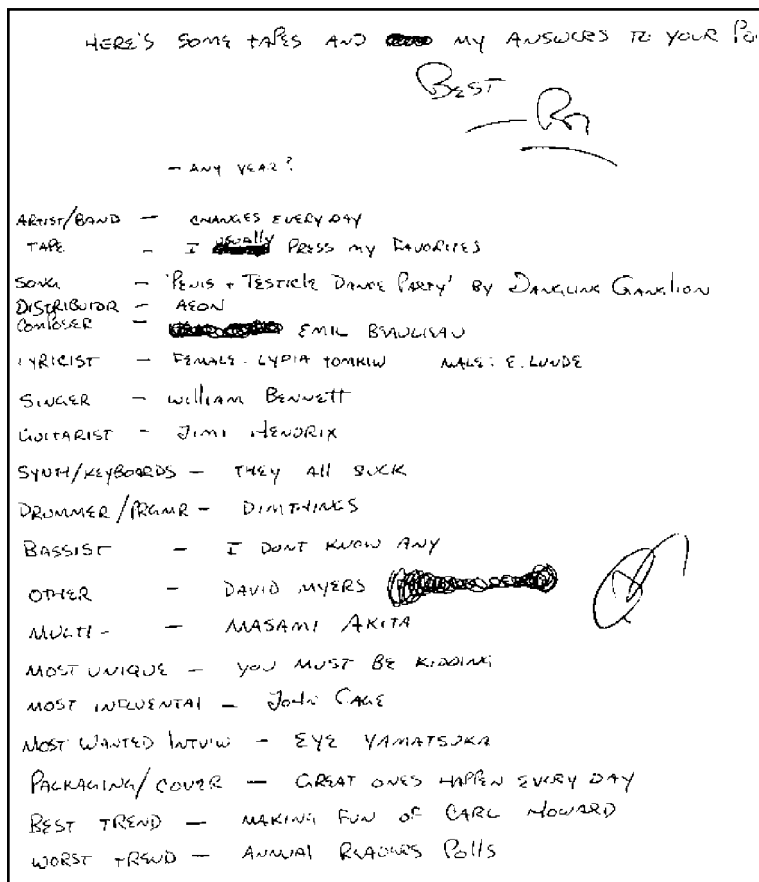 HERE'S SOME TAPES AND MY ANSWERS TO YOUR
BEST
— Ron
- ANY YEAR?
ARTIST/BAND — CHANGES EVERY DAY
TAPE - I usually PRESS MY FAVORITES
SONG - 'PENIS + TESTICLE DANCE PARTY' BY DANGLING GANGLION
DISTRIBUTOR - AEON
COMPOSER - EMIL BEAULIEAU
LYRICIST - FEMALE - LYDIA TOMKIW MALE: E. LUNDE
SINGER - WILLIAM BENNETT
GUITARIST - JIMI HENDRIX
SYNTH/KEYBOARDS - THEY ALL SUCK
DRUMMER/PRGMR - DIMTHINGS
BASSIST - I DONT KNOW ANY
OTHER - DAVID MYERS
MULTI- - MASAMI AKITA
MOST UNIQUE - YOU MUST BE KIDDING
MOST INFLUENTAL - JOHN CAGE
MOST WANTED INTVIW - EYE YAMATSUKA
PACKAGING/COVER - GREAT ONES HAPPEN EVERY DAY
BEST TREND - MAKING FUN OF CARL HOWARD
WORST TREND - ANNUAL READERS POLLS